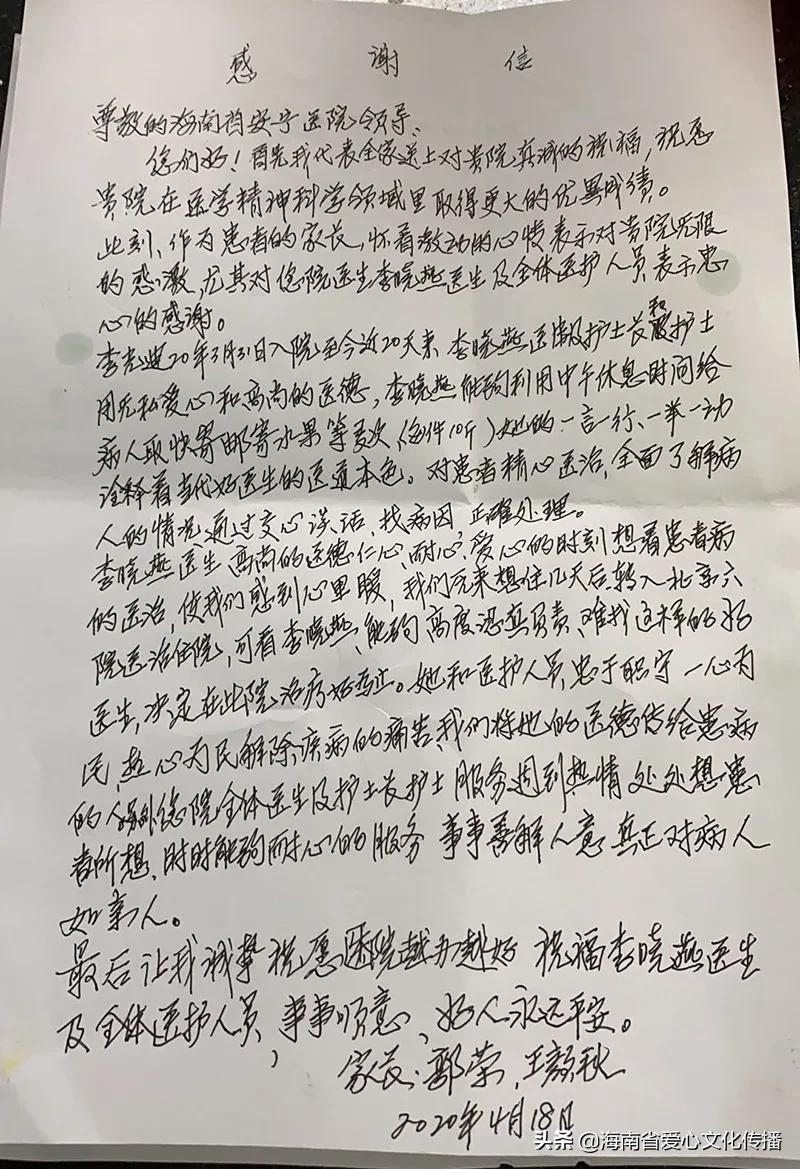 感谢信
尊敬的海南省安宁医院领导、
您们好！首先我代表全家送上对贵院真诚的祝福，祝愿
贵院在医学精神科学领域里取得更大的优异成绩。
此刻、作为患者的家长，怀着激动的心情表示对贵院无限
的感激，尤其对您院医生李晓燕医生及全体医护人员表示忠
心的感谢。
20年3月31日入院至今近20天来、李晓燕医生及护士长和护士
用无私爱心和高尚的医德，李晓燕能够利用中午休息时间给
病人取快寄邮寄水果等多次（每件10斤）她的一言一行、一举一动
诠释着当代好医生的医道本色。对患者精心医治，全面了解病
人的情况，通过交心谈话，找病因，正确处理。
李晓燕医生高尚的医德仁心、耐心、爱心的时刻想着患者病
的医治，使我们感到心里暖，我们原来想住几天后转入北京六
院医治住院，可看李晓燕、能够高度认真负责、难找这样的好
医生，决定在此院治疗好为止。她和医护人员忠于职守一心为
民，热心为民解除疾病的痛苦，我们将她的医德传给患病
的人，另外您院全体医生及护士长护士服务周到热情处处想患
者所想，时时能够耐心的服务 事事善解人意真正对病人
如亲人。
最后让我诚挚祝愿医院越办越好 祝福李晓燕医生
及全体医护人员，事事顺意、好人永远平安。
家长：郭荣、王颜秋
2020年4月18日
头条 @海南省爱心文化传播